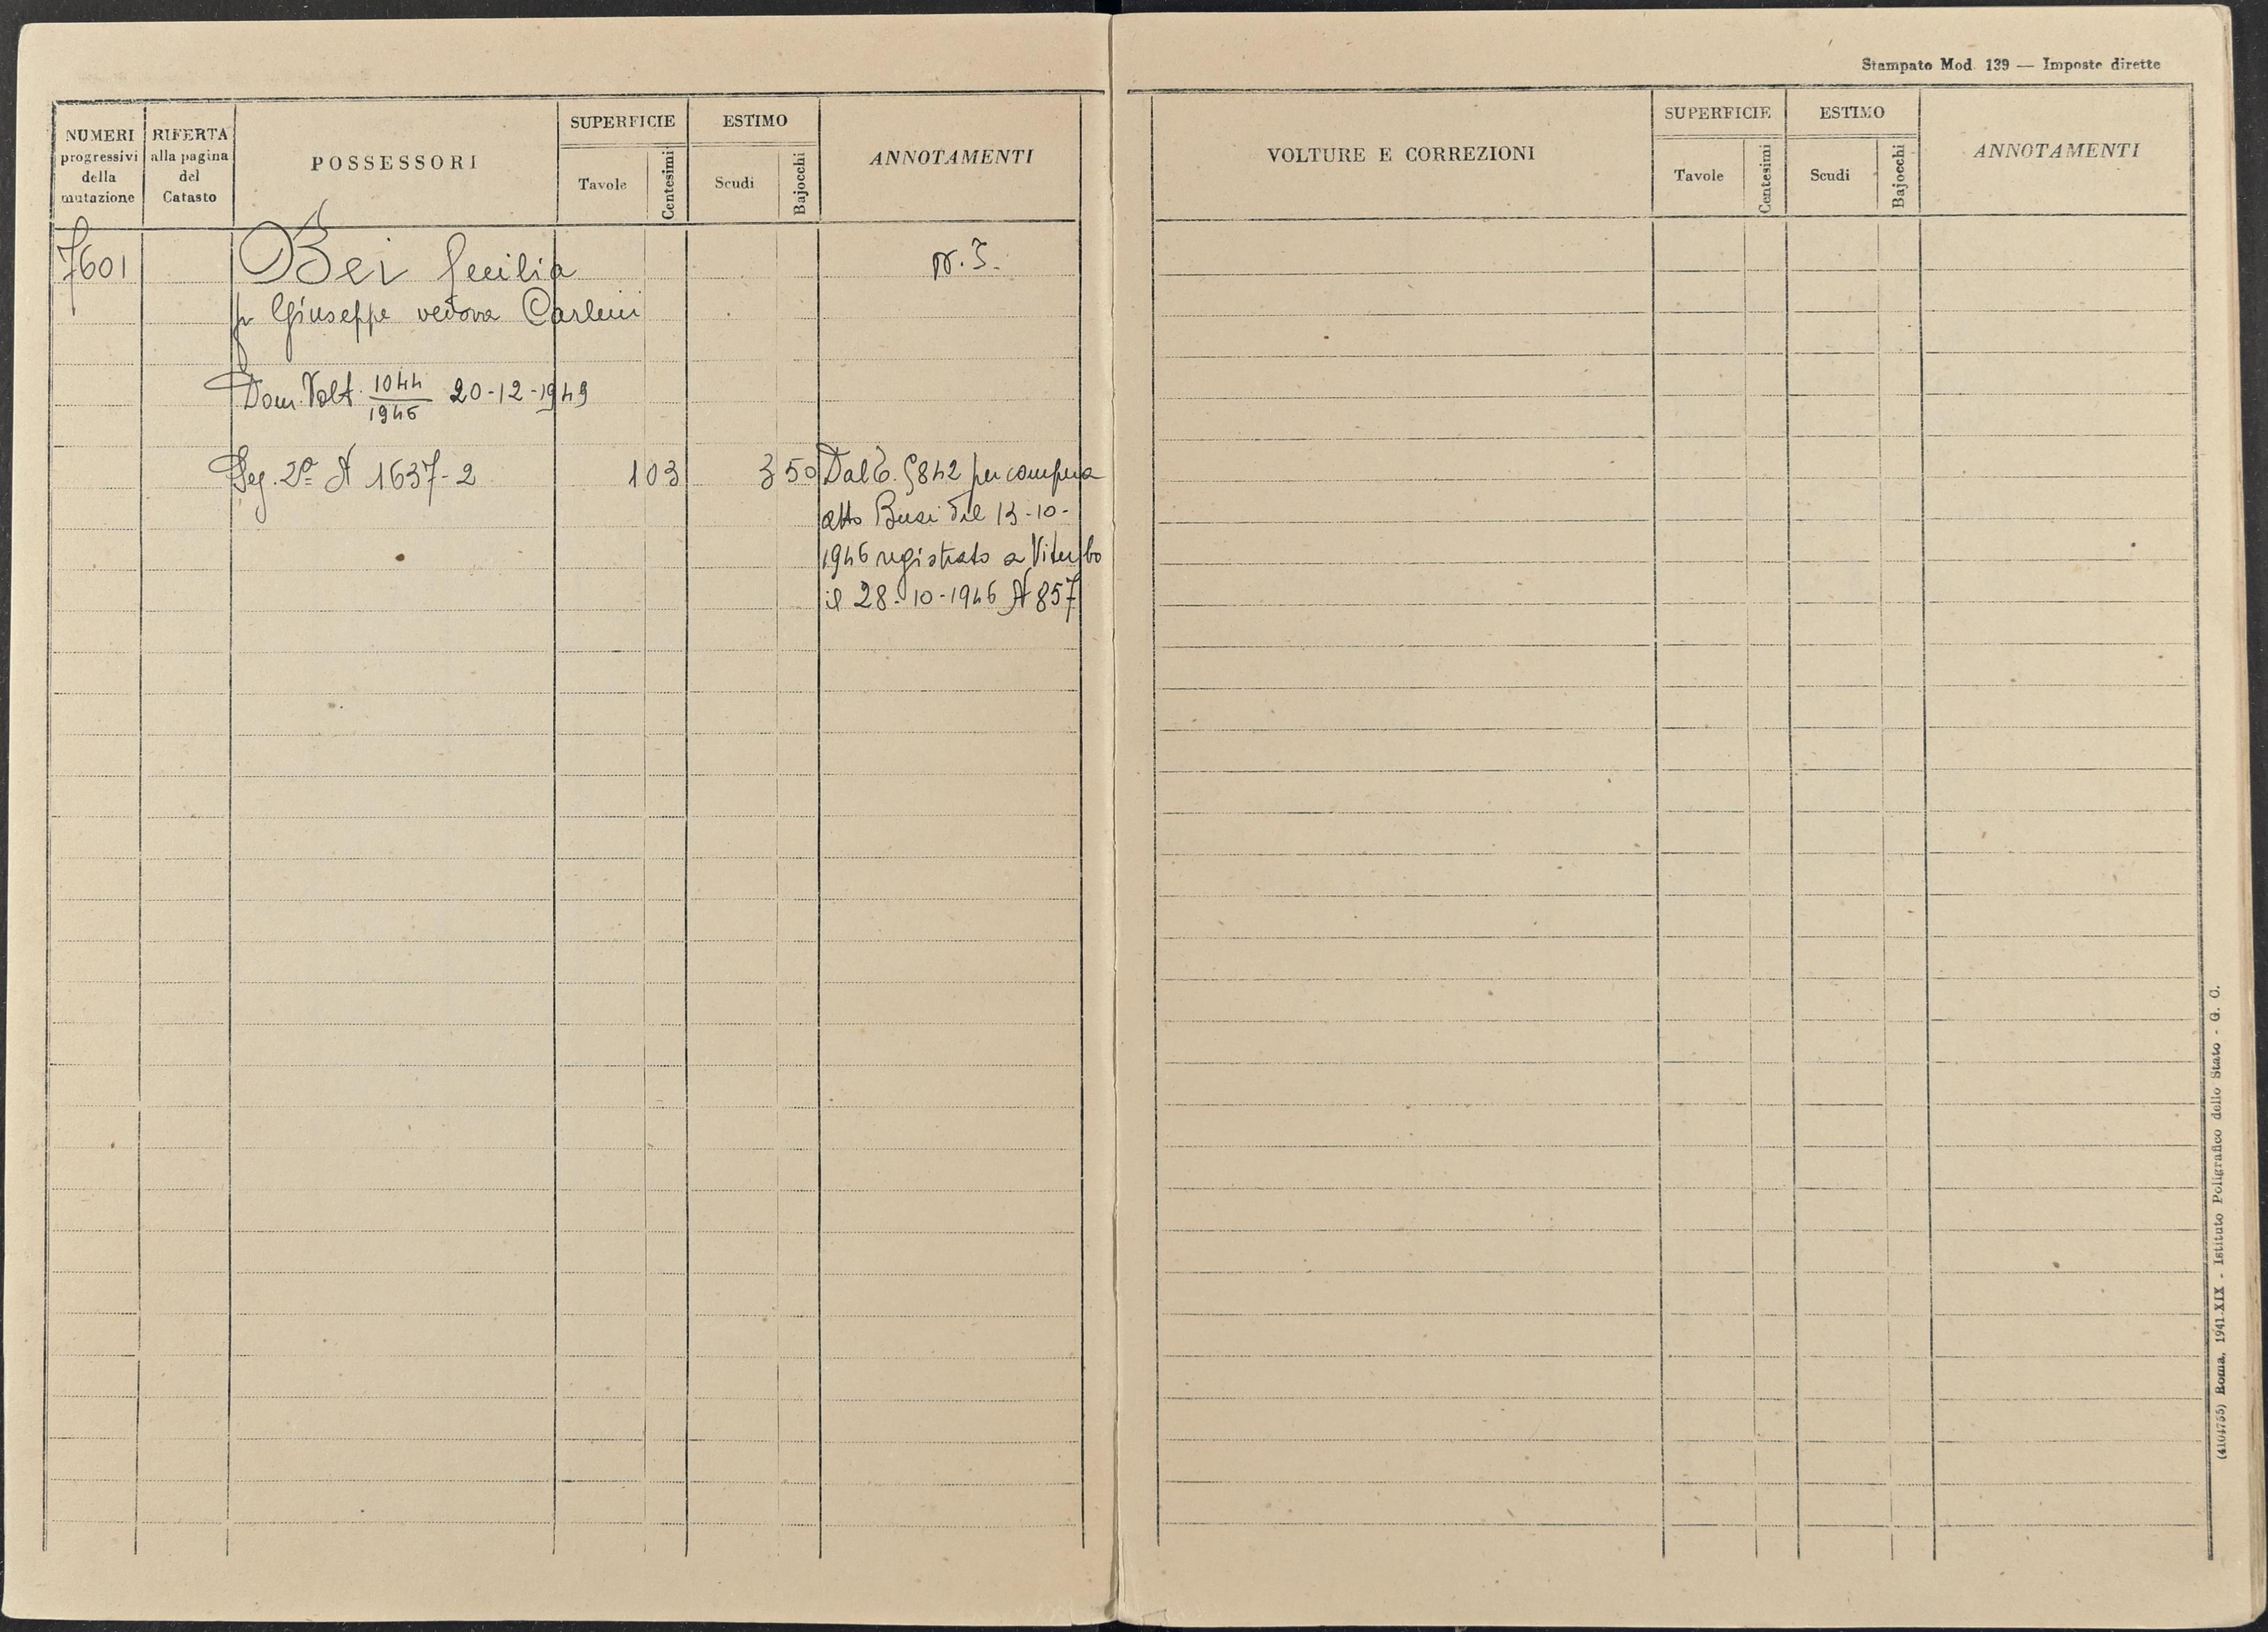 Stampato Mod. 139 — Imposte dirette
NUMERI progressivi della mutazione
RIFERTA alla pagina del Catasto
POSSESSORI
SUPERFICIE
Tavole
Centesimi
ESTIMO
Scudi
Bajocchi
ANNOTAMENTI
VOLTURE E CORREZIONI
SUPERFICIE
Tavole
Centesimi
ESTIMO
Scudi
Bajocchi
ANNOTAMENTI
7601 Bei Cecilia
fu Giuseppe vedova Carlini
Dom. Volt. 1044/1946 20-12-1949
Seg. 2ª N 1637-2 1 03 3 50 Dal C. 5842 per compera
atto Busi del 13-10-
1946 registrato a Viterbo
il 28-10-1946 N 857
(4104755) Roma, 1941-XIX - Istituto Poligrafico dello Stato - G. C.